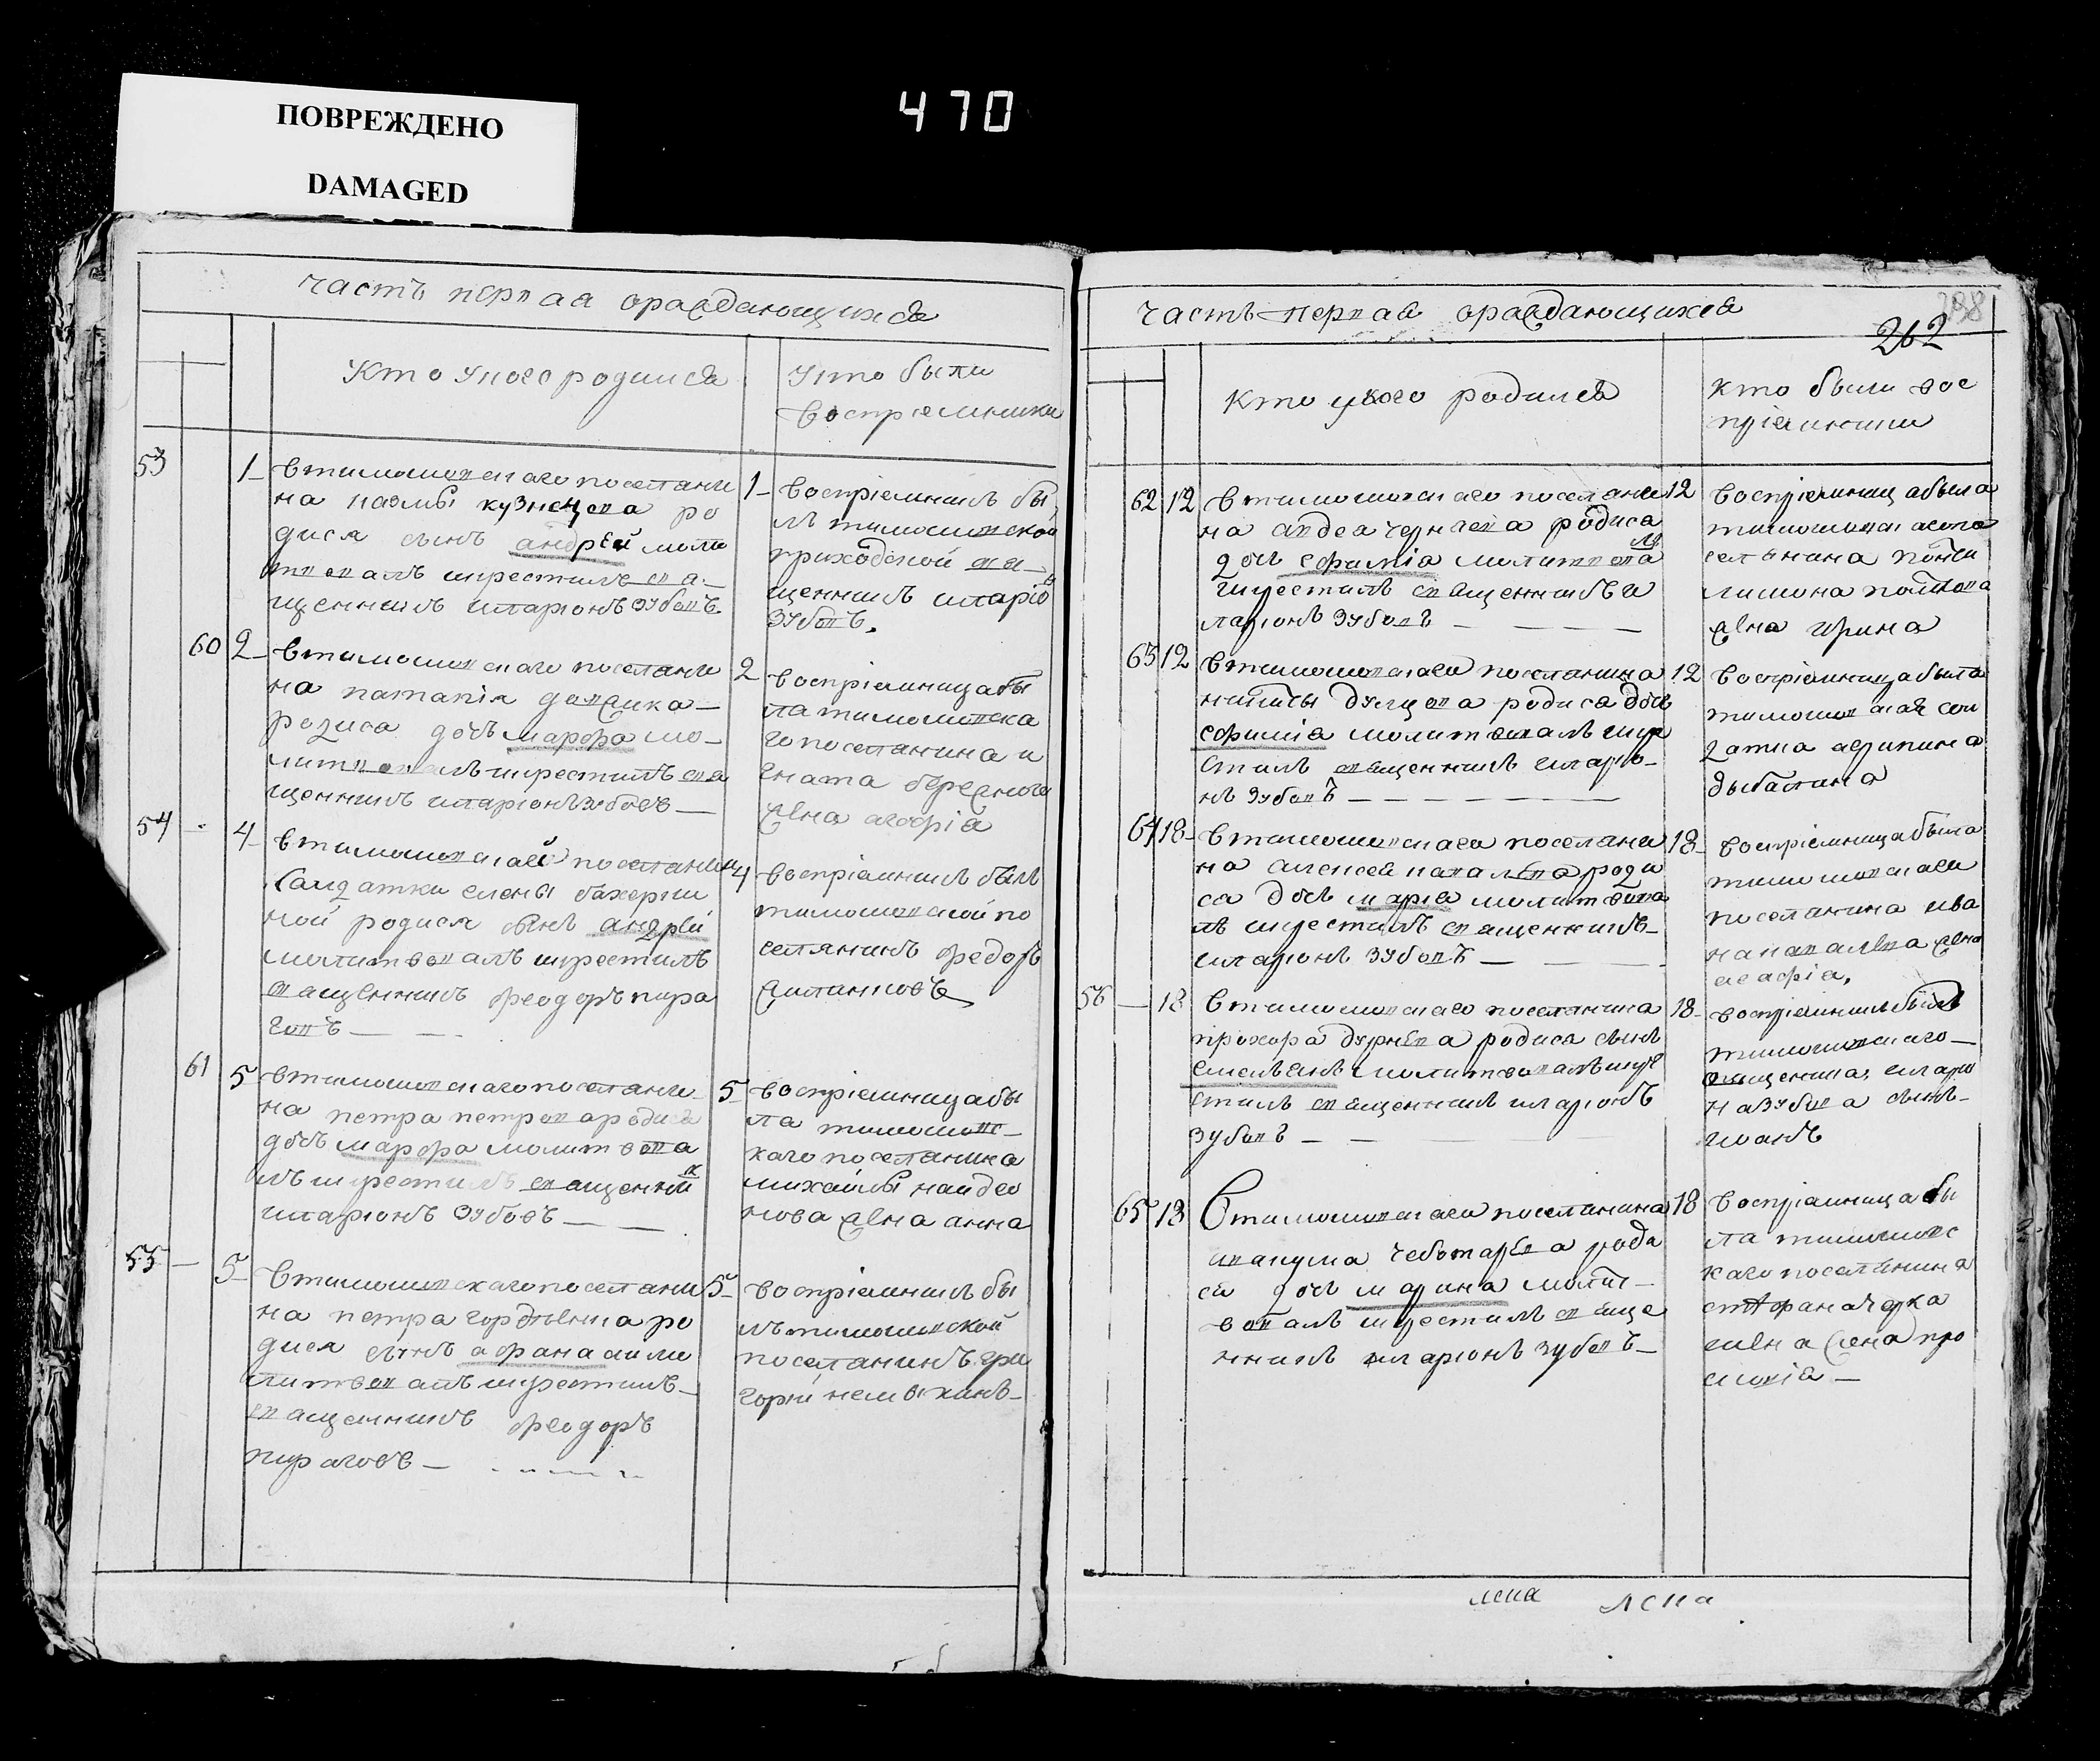 ПОВРЕЖДЕНО
DAMAGED
470
часть первая ораждающихся
Кто у кого родился
Кто были
воспріемники
53
1
втимошовскаго поселяни
на наумы кузнецова ро
дися сынъ андрей моли
твовалъ икрестилъ свя
щенникъ иларіонъ зубовъ
1
воспріемникъ бы
лъ тимошовской
приходской свя
щенникъ иларіо
зубовъ.
60
2
втимошовскаго поселяни
на
родиса дочь марфа мо
литвовалъ икрестилъ свя
щенникъ иларіонъ зубовъ
2
воспріемница бы
ла тимошовска
го поселянина и
гната
жена агафіа
54
4
втимошовскаго поселянина
салдатки елены
ной родися сынъ андрей
молитвовалъ икрестилъ
священникъ феодоръ пира
говъ
4
воспріемникъ былъ
тимошовской по
селянинъ федоръ
61
5
втимошовскаго поселяни
на петра петрова родиса
дочь марфа молитвова
лъ икрестилъ священни
иларіонъ зубовъ
5
воспріемница бы
ла тимошовс
каго поселянина
михайлы найдео
нова жена анна
55
5
втимошовскаго поселяни
на петра гордѣенка ро
дися сынъ афанасии мо
литвовалъ икрестилъ
священникъ феодоръ
пираговъ
5
воспріемникъ бы
лъ тимошовской
поселянинъ гри
горій немыкинъ
часть первая ораждающихся
262
Кто укого родился
кто были вос
пріемники
62
12
втимошовскаго поселяни
на авдеа чернаева родиса
дочь ефиміа молитвова
лъ
икрестилъ священникъ и
ларіонъ зубовъ
12
воспріемница была
тимошовскаго по
селянина
жена ирина
63
12
втимошовскаго поселянина
никиты родиса дочь
ефиміа молитвовалъ икре
стилъ священникъ иларіо
нъ зубовъ
12
воспріемница была
тимошовская сол
датка агрипина
64
18
втимошовскаго поселяни
на алексеа роди
са дочь мариа молитвова
лъ икрестилъ священникъ
иларіонъ зубовъ
18
воспріемница была
тимошовскаго
поселянина ива
на жена
агафіа.
56
18
втимошовскаго поселянина
прохора дурнева родиса сынъ
емельянъ молитвовалъ икре
стилъ священникъ иларіонъ
зубовъ
18
воспріемникъ былъ
тимошовскаго
священника иларіо
на зубова сынъ
иоанъ
65
18
втимошовскаго поселянина
чеботарева роди
са дочь марина молит
вовалъ икрестилъ свяще
нникъ иларіонъ зубовъ
18
воспріемница бы
ла тимошовс
каго поселянина
жена